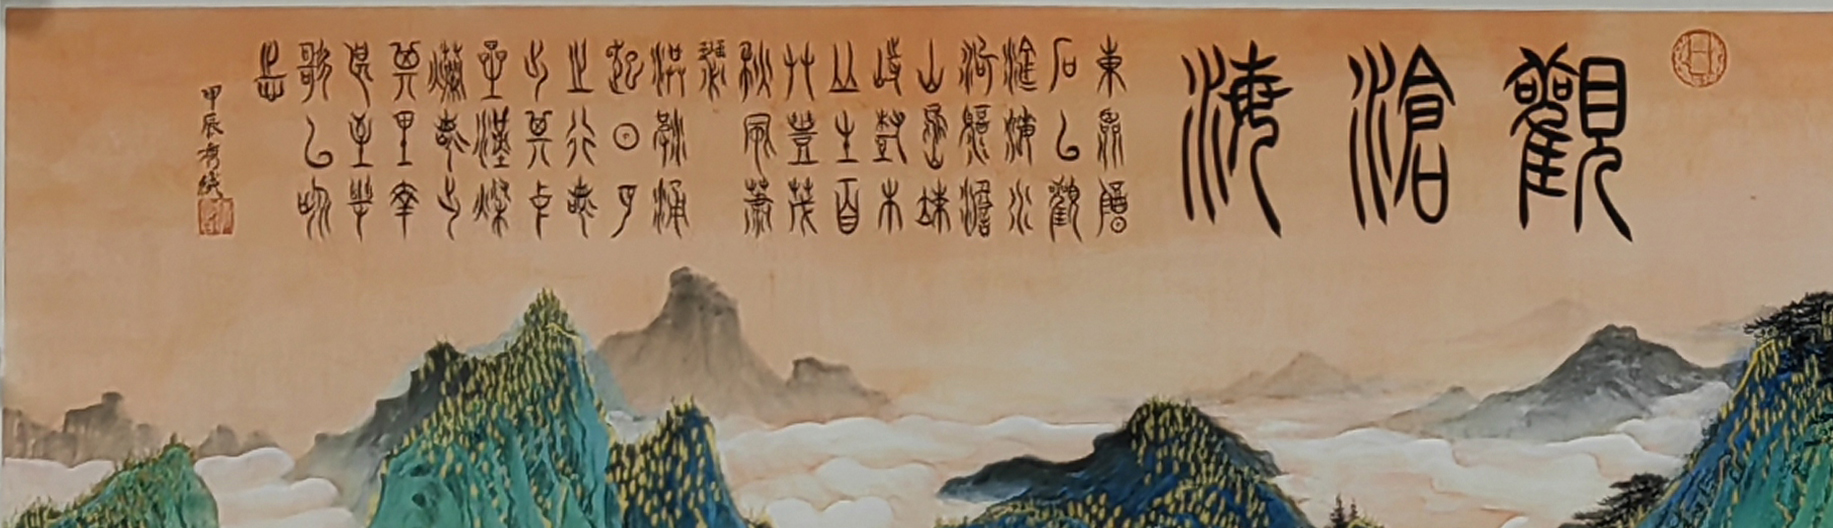 觀滄海
東臨碣
石以觀
滄海水
何澹澹
山島竦
峙樹木
叢生百
艸豐茂
秋風蕭
瑟
洪波涌
起日月
之行若
出其中
星漢燦
爛若出
其里幸
甚至哉
歌以詠
志
甲辰